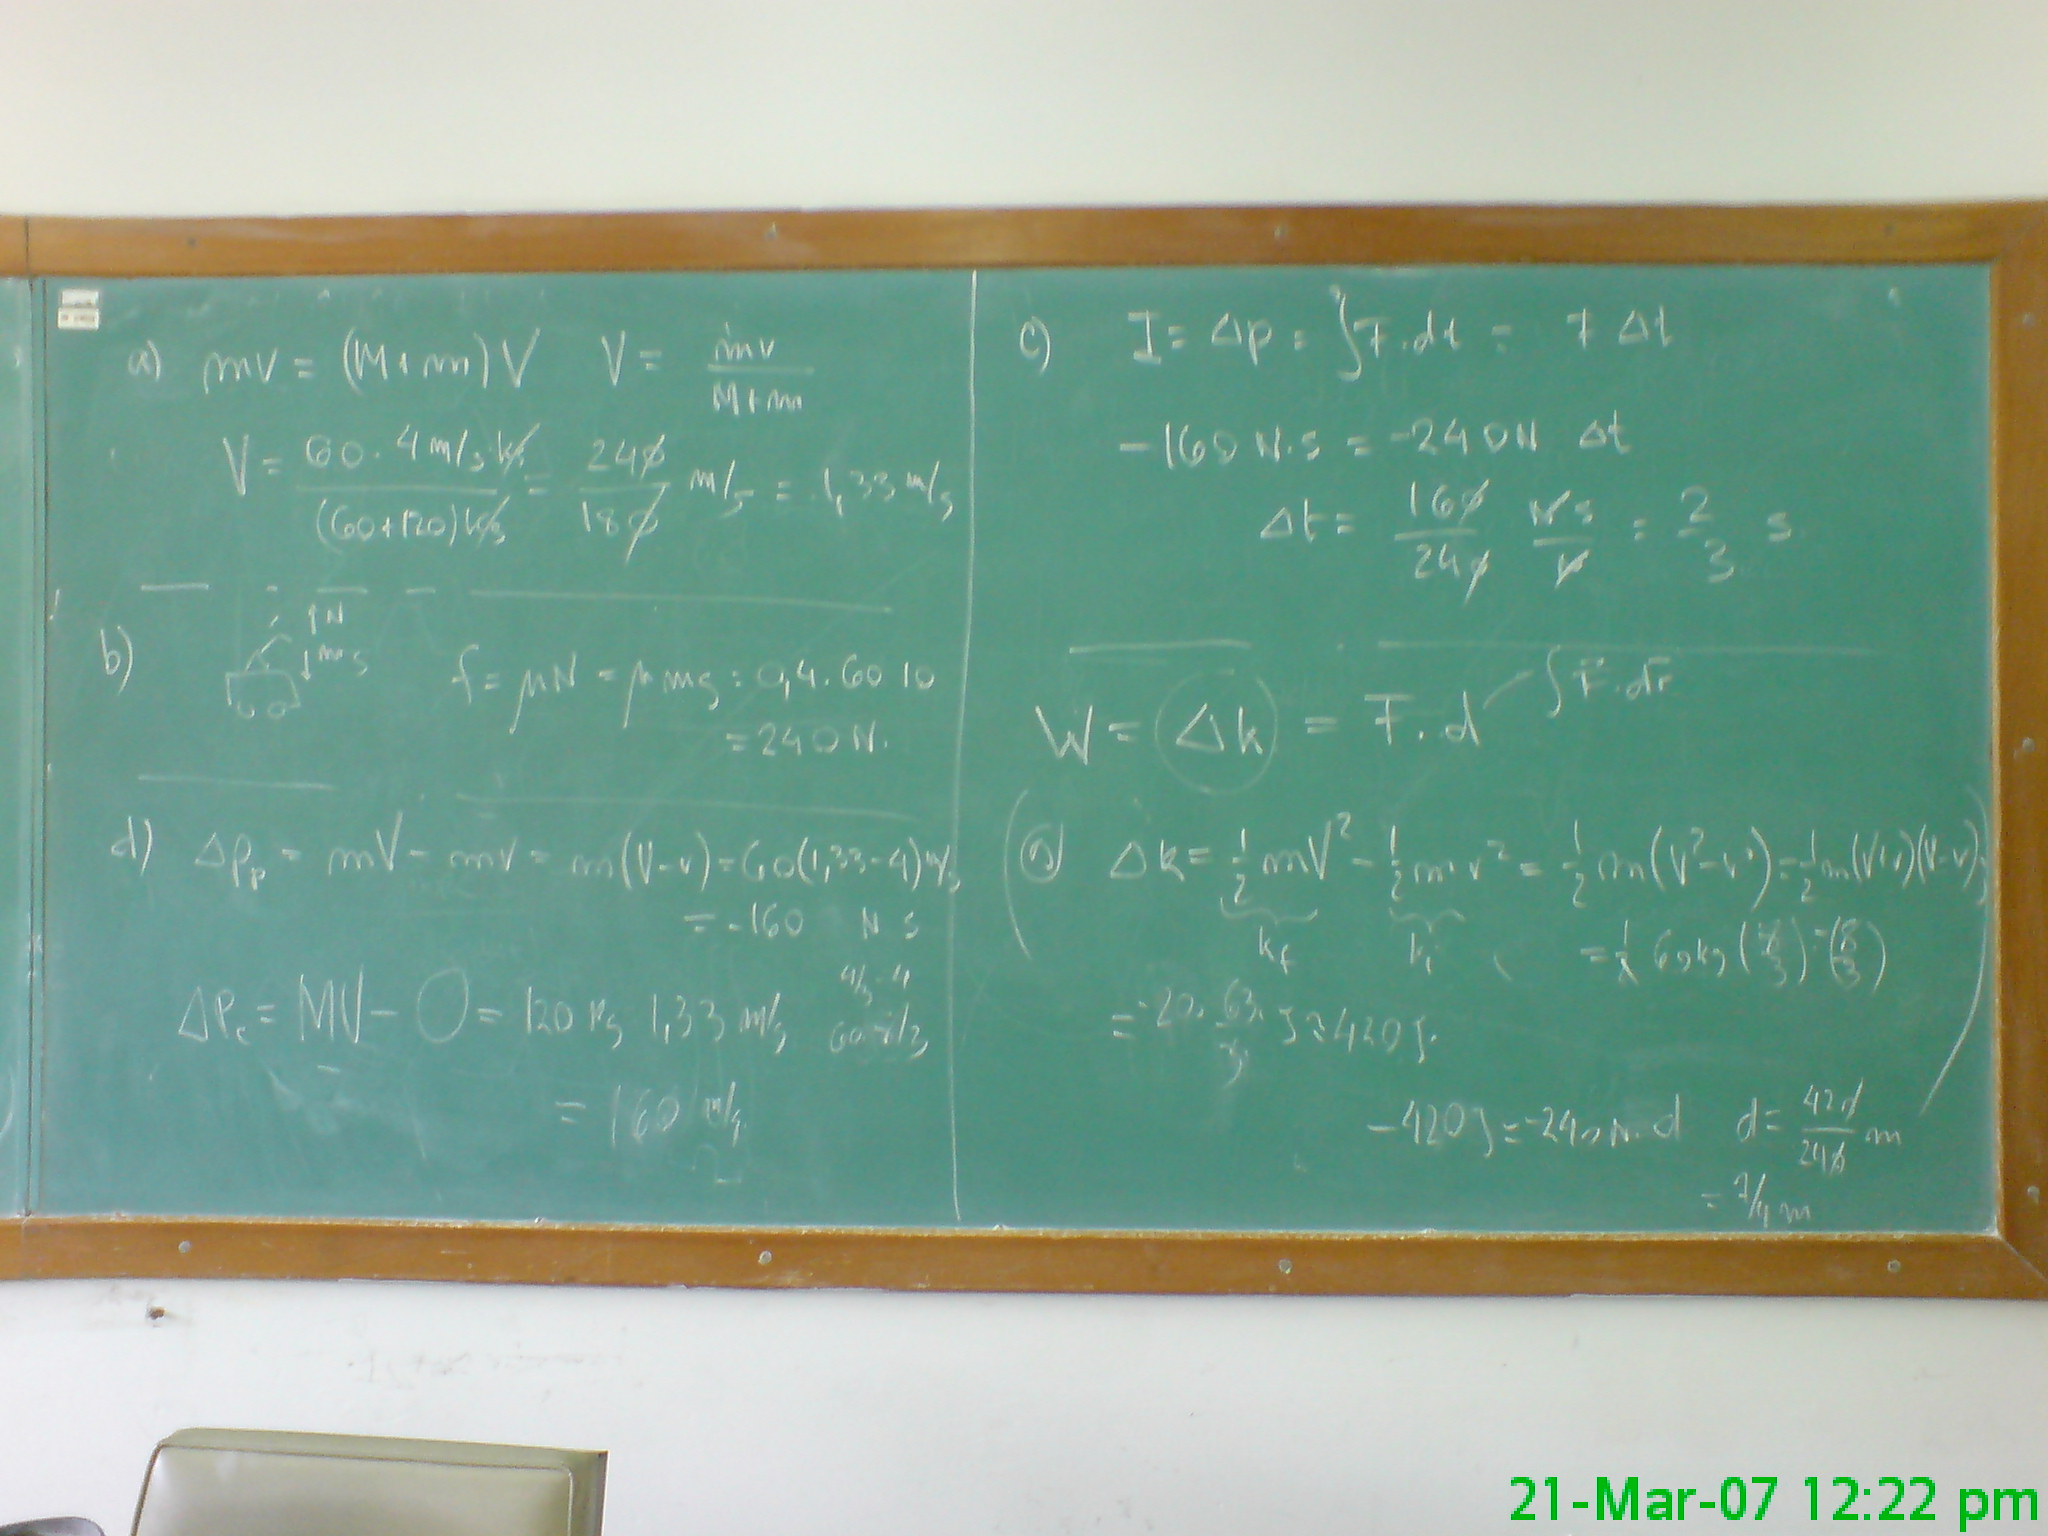 a) mv = (M+m)V   V = mv/(M+m)
V = 60.4 m/s.kg/((60+120)kg) = 240/180 m/s = 1,33 m/s
b) ↑N
↓mg
f = μN = μmg = 0,4.60 10
= 240 N.
d) Δp_p = mV - mv = m(V-v) = 60(1,33-4)m/s
= -160 N s
4/3 - 4
ΔP_c = MV - 0 = 120 kg 1,33 m/s   60.8/3
= 160 m/s
c) I = Δp = ∫F.dt = F Δt
-160 N.s = -240N Δt
Δt = 160/240 N s/N = 2/3 s
W = Δk = F.d   ∫F.dr
Δk = 1/2 mV² - 1/2 m v² = 1/2 m(V²-v²) = 1/2 m(V+v)(V-v)
k_f   k_i   = 1/2 60kg
≈ 420 J.
-420J = -240N.d   d = 420/240 m
= 7/4 m
21-Mar-07 12:22 pm